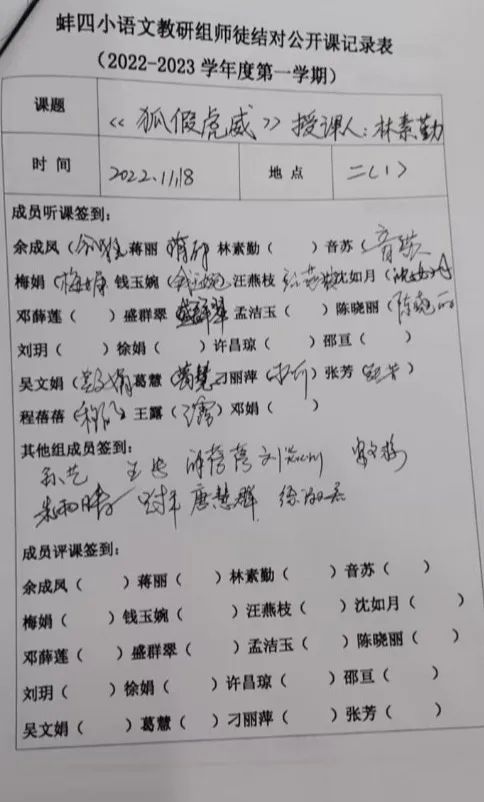 蚌四小语文教研组师徒结对公开课记录表
（2022-2023 学年度第一学期）
课题 《狐假虎威》授课人：林素勤
时 间 2022.11.18 地 点 二（1）
成员听课签到：
余成凤（ 蒋丽 蒋丽 林素勤（ ）音苏（音苏
梅娟（梅娟 钱玉婉（钱玉婉 汪燕枝 汪燕枝 沈如月（沈如月
邓薛莲（ ）盛群翠 盛群翠 孟洁玉（ ）陈晓丽（陈晓丽
刘玥（ ）徐娟（ ）许昌琼（ ）邵亘（ ）
吴文娟（吴文娟 葛慧（葛慧 刁丽萍（ ）张芳（张芳
程蓓蓓（ ）王露（王露）邓娟（ ）
其他组成员签到：
孙艺
唐慧群
成员评课签到：
余成凤（ ）蒋丽（ ）林素勤（ ）音苏（ ）
梅娟（ ）钱玉婉（ ）汪燕枝（ ）沈如月（ ）
邓薛莲（ ）盛群翠（ ）孟洁玉（ ）陈晓丽（ ）
刘玥（ ）徐娟（ ）许昌琼（ ）邵亘（ ）
吴文娟（ ）葛慧（ ）刁丽萍（ ）张芳（ ）